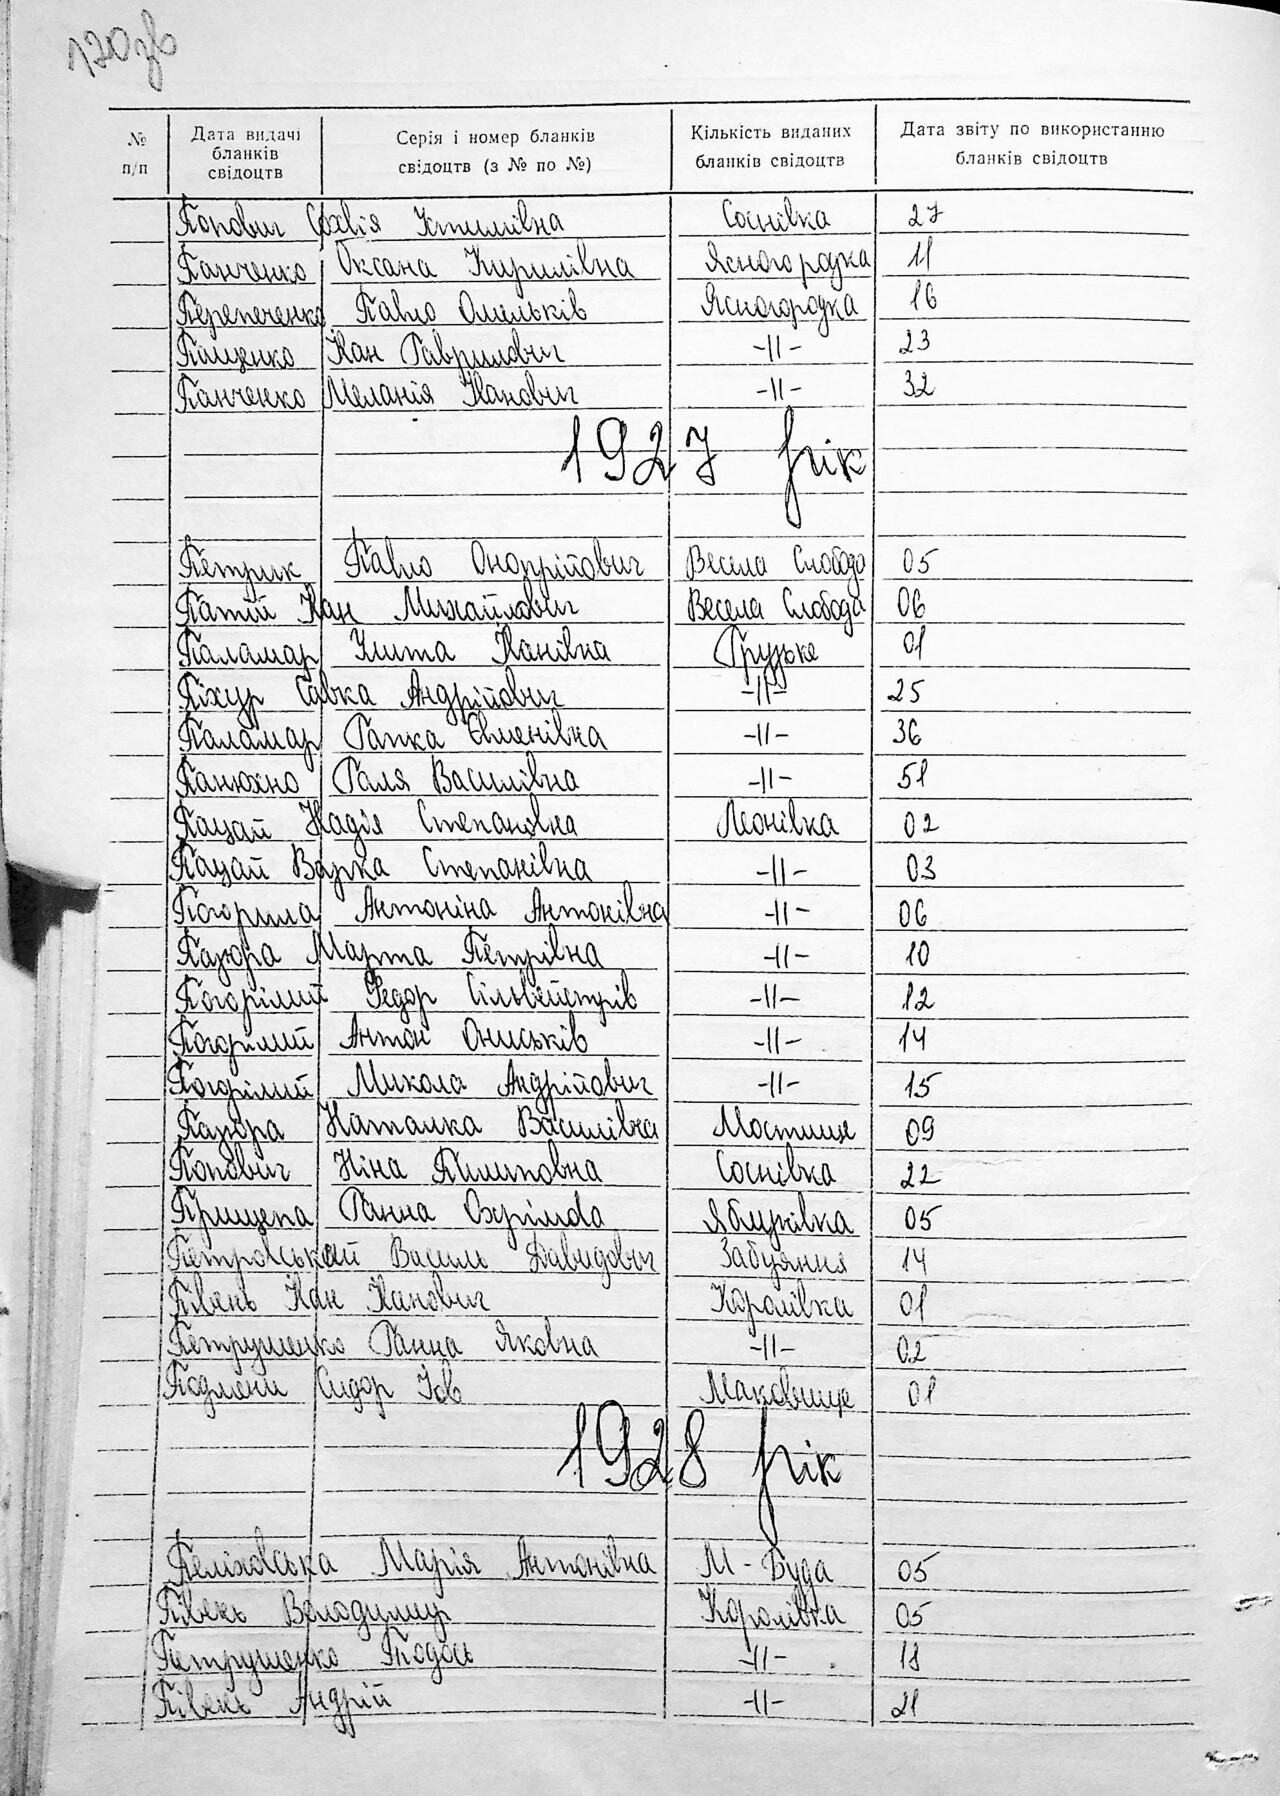 120 зв
№ п/п | Дата видачі бланків свідоцтв | Серія і номер бланків свідоцтв (з № по №) | Кількість виданих бланків свідоцтв | Дата звіту по використанню бланків свідоцтв
Попович Софія Устимівна Соснівка 27
Панченко Оксана Кирилівна Ясногородка 11
Перепеченко Павло Омельків Ясногородка 16
Пащенко Іван Гаврилович -11- 23
Панченко Меланія Іванович -11- 32
1927 рік
Петрик Павло Онопрійович Весела Слобода 05
Патій Іван Михайлович Весела Слобода 06
Паламар Улита Іванівна Грузьке 01
Піхур Савка Андрійович -11- 25
Паламар Гапка Євменівна -11- 36
Панюхно Галя Василівна -11- 51
Пацай Надія Степанівна Леонівка 02
Пацай Варка Степанівна -11- 03
Погорила Антоніна Антонівна -11- 06
Пазюра Марта Петрівна -11- 10
Погорілий Федор Сільвейстрів -11- 12
Погорілий Антон Ониськів -11- 14
Погорілий Микола Андрійович -11- 15
Наталка Василівна Мостище 09
Попович Ніна Пилиповна Соснівка 22
Прищепа Ганна Охрімова Яблунівка 05
Петровський Василь Давидович Забуяння 14
Півень Іван Іванович Королівка 01
Петрушенко Ганна Яковна -11- 02
Сидор Іов Маковище 01
1928 рік
Пеліховська Марія Антонівна М-Буда 05
Півень Володимир Королівка 05
Петрушенко Тодось -11- 18
Півень Андрій -11- 21